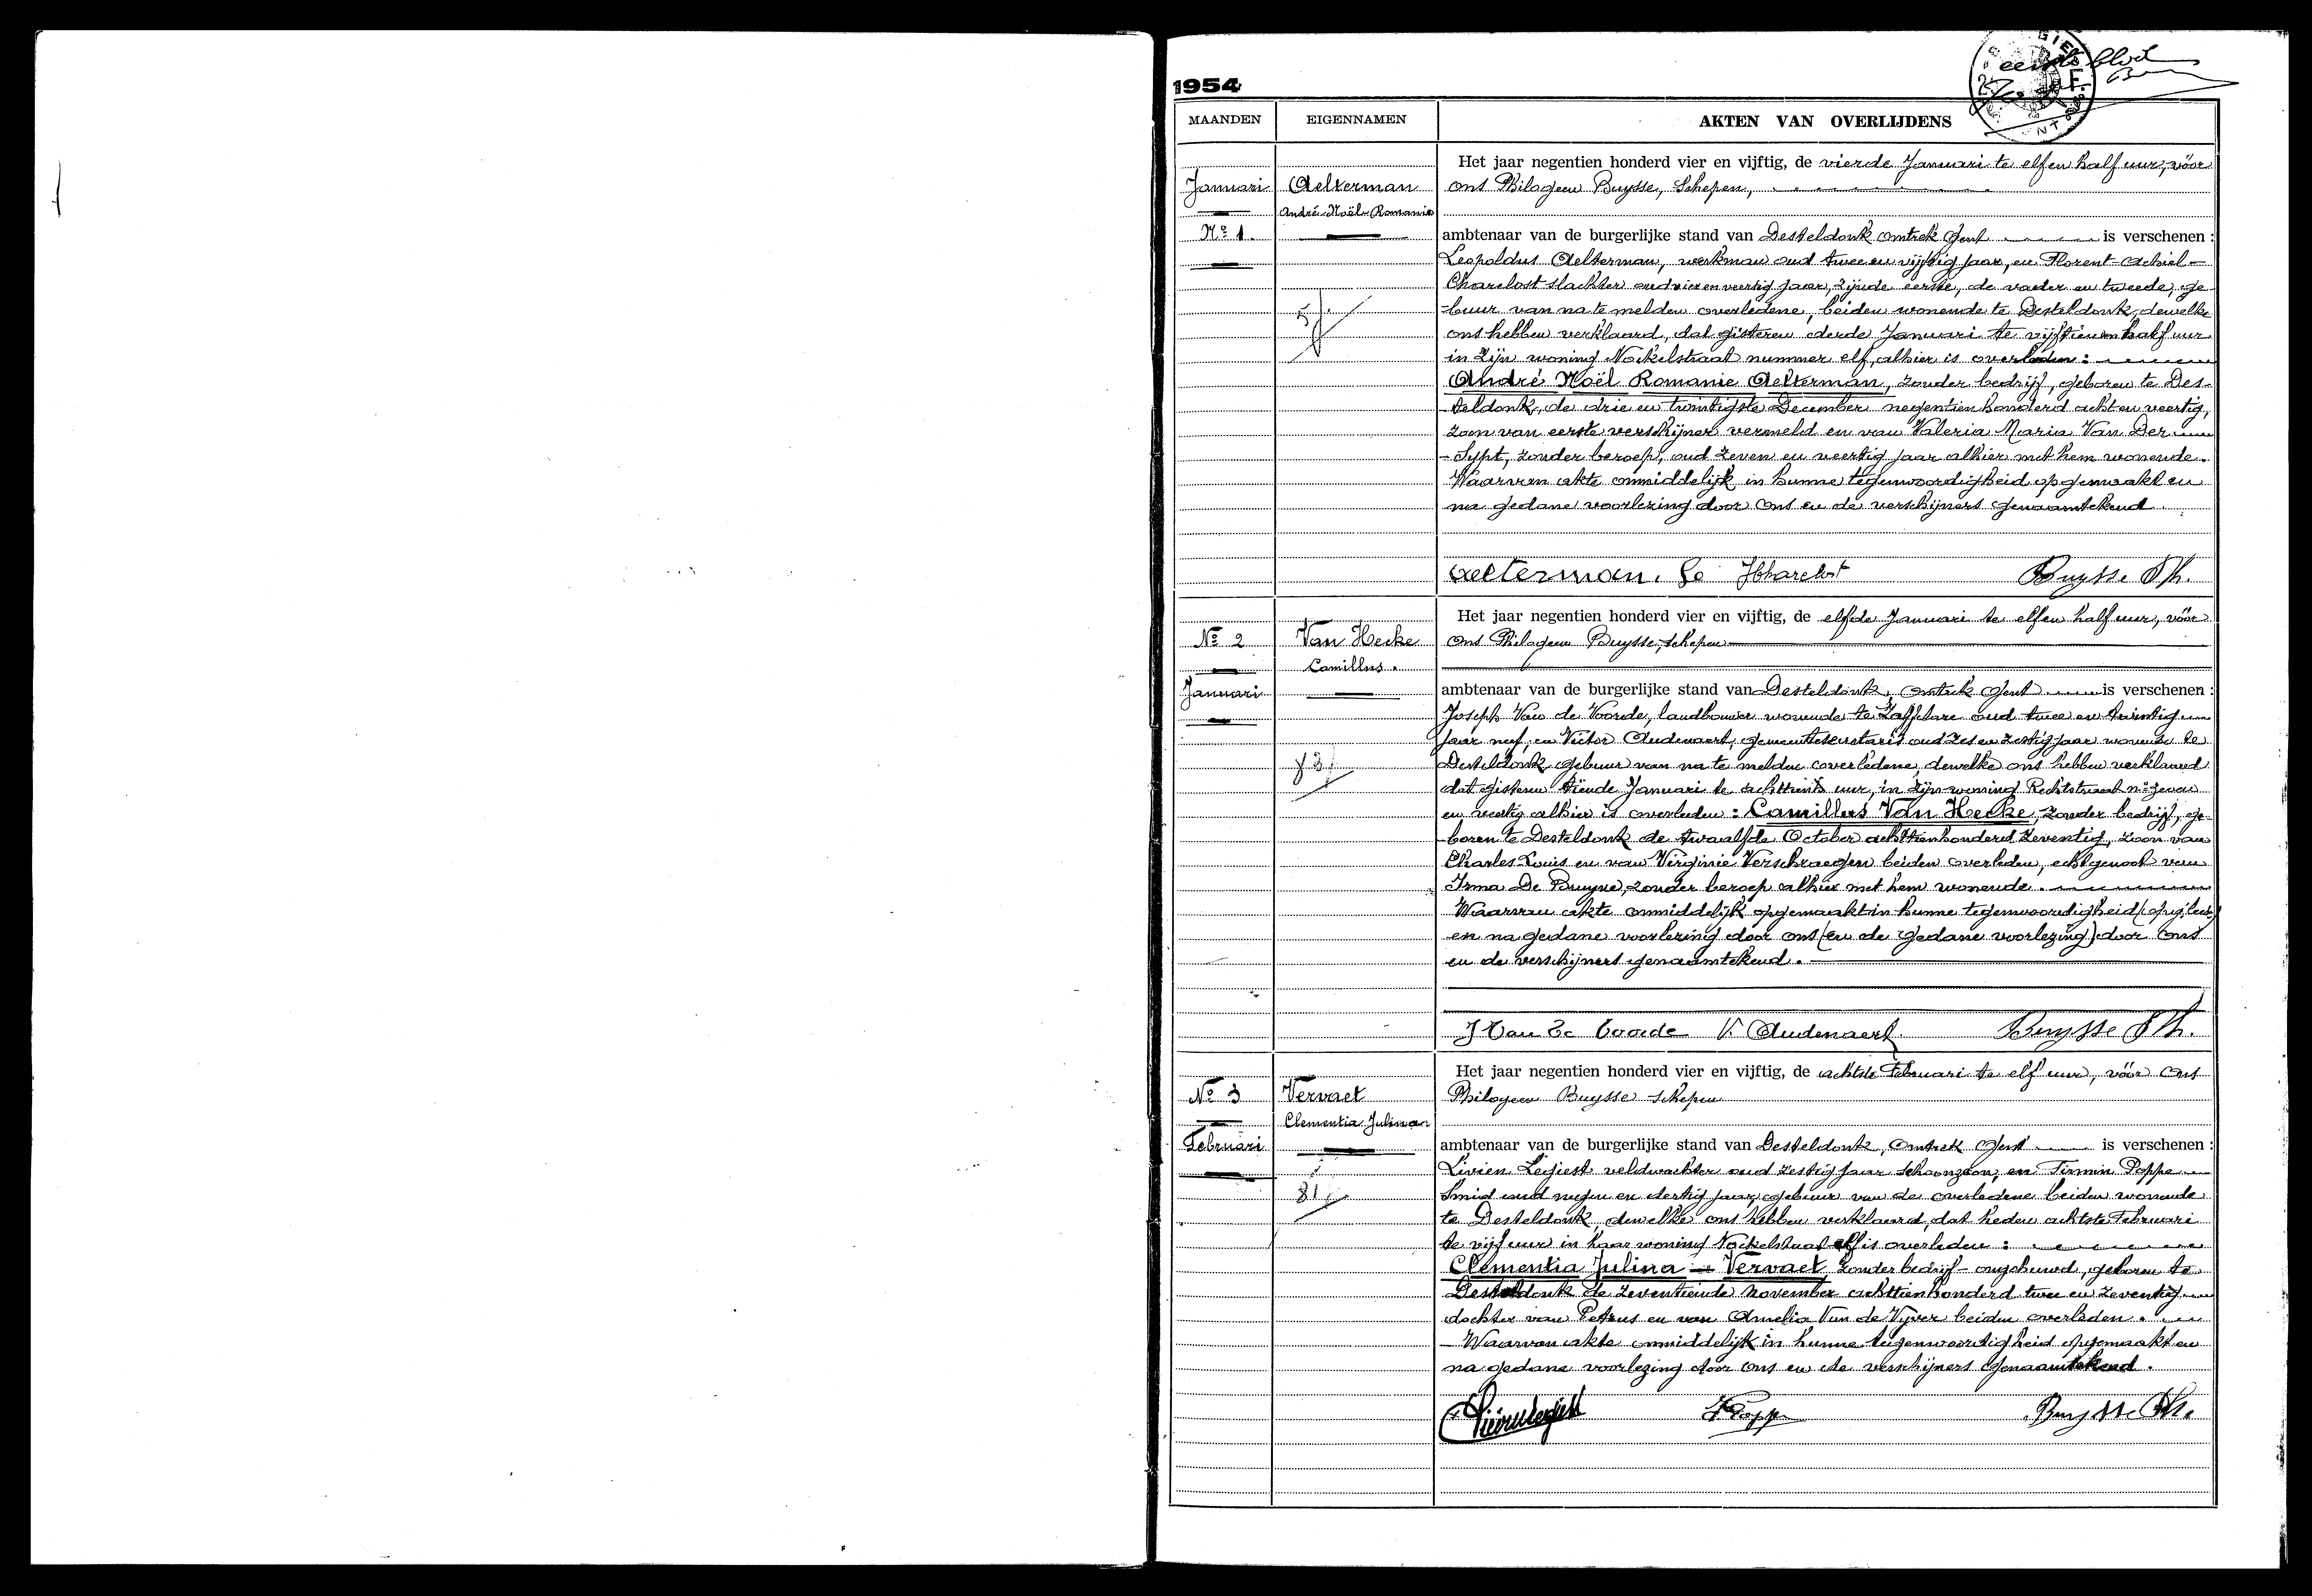 eerste blad
1954
MAANDEN EIGENNAMEN AKTEN VAN OVERLIJDENS
Het jaar negentien honderd vier en vijftig, de vierde Januari te elf en half uur, vóór
Januari Aelterman ons Philogeen Buysse, Schepen,
André-Noël-Romanie
No 1. ambtenaar van de burgerlijke stand van Desteldonk omtrek Gent is verschenen :
Leopoldus Aelterman, werkman oud twee en vijftig jaar, en Florent-Achiel-
Charelost slachter oud vier en veertig jaar, zijnde eerste, de vader en tweede, ge-
5 -buur van na te melden overledene, beiden wonende te Desteldonk, dewelke
ons hebben verklaard, dat gisteren derde Januari te vijftien en half uur
in zijn woning Nockelstraat nummer elf, alhier is overleden :
André Noël Romanie Aelterman, zonder bedrijf, geboren te Des-
-teldonk, de drie en twintigste December negentien honderd acht en veertig,
zoon van eerste verschijner vermeld en van Valeria Maria Van Der
-Sypt, zonder beroep, oud zeven en veertig jaar alhier met hem wonende.
Waarvan akte onmiddelijk in hunne tegenwoordigheid opgemaakt en
na gedane voorlezing door ons en de verschijners genaamtekend.
Aelterman. Le FCharelost Buysse Ph.
Het jaar negentien honderd vier en vijftig, de elfde Januari te elf en half uur, vóór
No 2 Van Hecke ons Philogeen Buysse, schepen
Camillus.
Januari ambtenaar van de burgerlijke stand van Desteldonk, omtrek Gent is verschenen :
Joseph Van de Voorde, landbouwer wonende te Zaffelare oud twee en twintig
jaar neef, en Victor Audenaert, gemeentesecretaris oud zes en zestig jaar wonende te
83 Desteldonk gebuur van na te melden overledene, dewelke ons hebben verklaard
dat gisteren tiende Januari te achttien uur, in zijn woning Rechtstraat no zeven
en veertig alhier is overleden : Camillus Van Hecke, zonder bedrijf, ge-
boren te Desteldonk de twaalfde October achttienhonderd zeventig, zoon van
Charles Louis en van Virginie Verschraegen beiden overleden, echtgenoot van
Irma De Bruyne, zonder beroep alhier met hem wonende.
Waarvan akte onmiddelijk opgemaakt in hunne tegenwoordigheid
en na gedane voorlezing door ons (en de gedane voorlezing) door ons
en de verschijners genaamtekend.
J Van de Voorde V. Audenaert Buysse Ph.
Het jaar negentien honderd vier en vijftig, de achtste Februari te elf uur, vóór ons
No 3 Vervaet Philogeen Buysse schepen
Clementia Julina
Februari ambtenaar van de burgerlijke stand van Desteldonk, omtrek Gent is verschenen :
Livien Legiest veldwachter oud zestig jaar schoonzoon, en Firmin Poppe
81 Smid oud negen en dertig jaar, gebuur van de overledene beiden wonende
te Desteldonk, dewelke ons hebben verklaard, dat heden achtste Februari
te vijf uur in haar woning Nockelstraat elf is overleden :
Clementia Julina - Vervaet zonder bedrijf - ongehuwd, geboren te
Desteldonk de zeventiende november achttienhonderd twee en zeventig
dochter van Petrus en van Amelia Van de Vyver beiden overleden.
- Waarvan akte onmiddelijk in hunne tegenwoordigheid opgemaakt en
na gedane voorlezing door ons en de verschijners genaamtekend.
Livien Legiest F Poppe Buysse Ph.